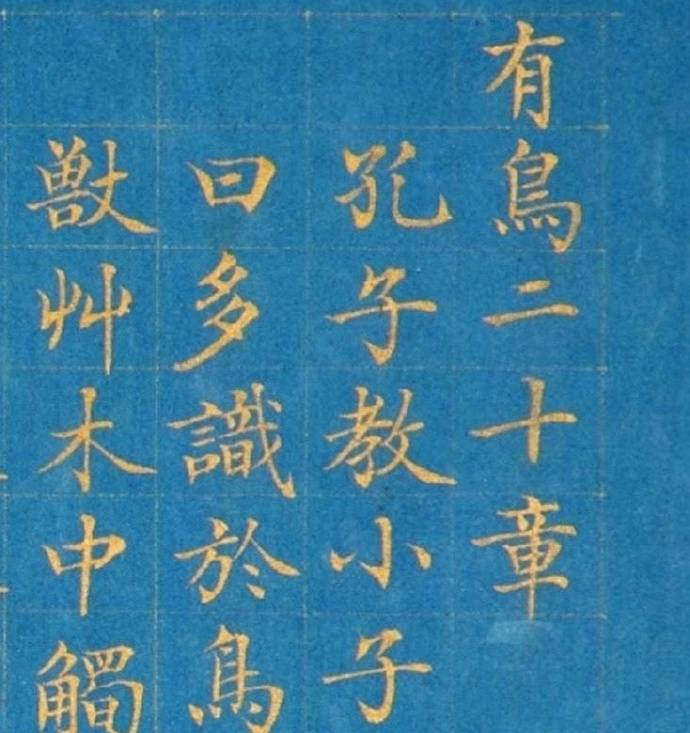 有鳥二十章
孔子教小子
曰多識於鳥
獸艸木中觸